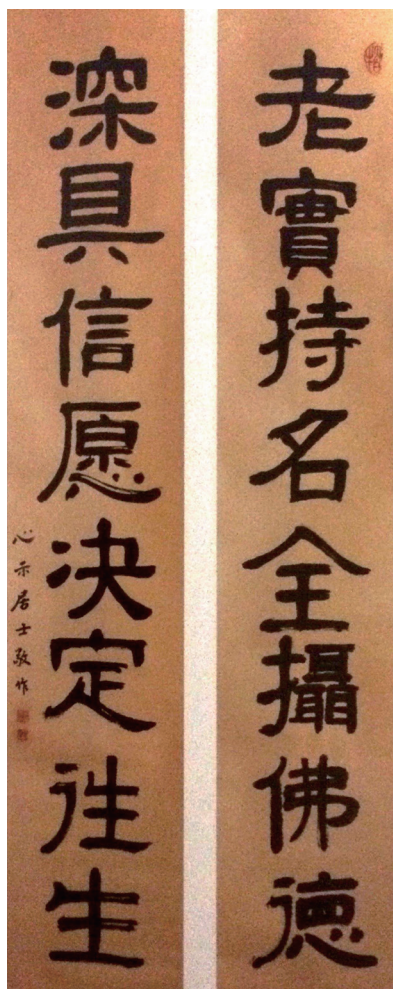 老實持名全攝佛德
深具信愿決定往生
心示居士敬作